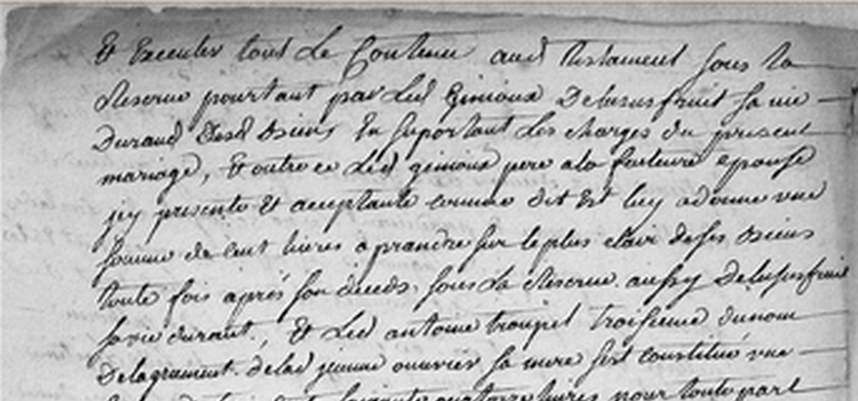 Et Executer tout Le Contenu aud testament sous la
Reserve pourtant par Led Genioux Delusufruit sa vie
Durand Desd Biens En suportant Les charges du present
mariage, Et outre ce Led genioux pere a la future epouse
jcy presente Et acceptante comme dit Est luy a donné une
somme de cent livres a prandre sur le plus clair de ses Biens
toute fois aprés son deceds, sous La Reserve aussy Delusufruit
sa vie durant., Et Led antoine troupel troisieme du nom
De lagrement de lad jeanne ouvrier sa mere sest constitué une
livres pour toute part